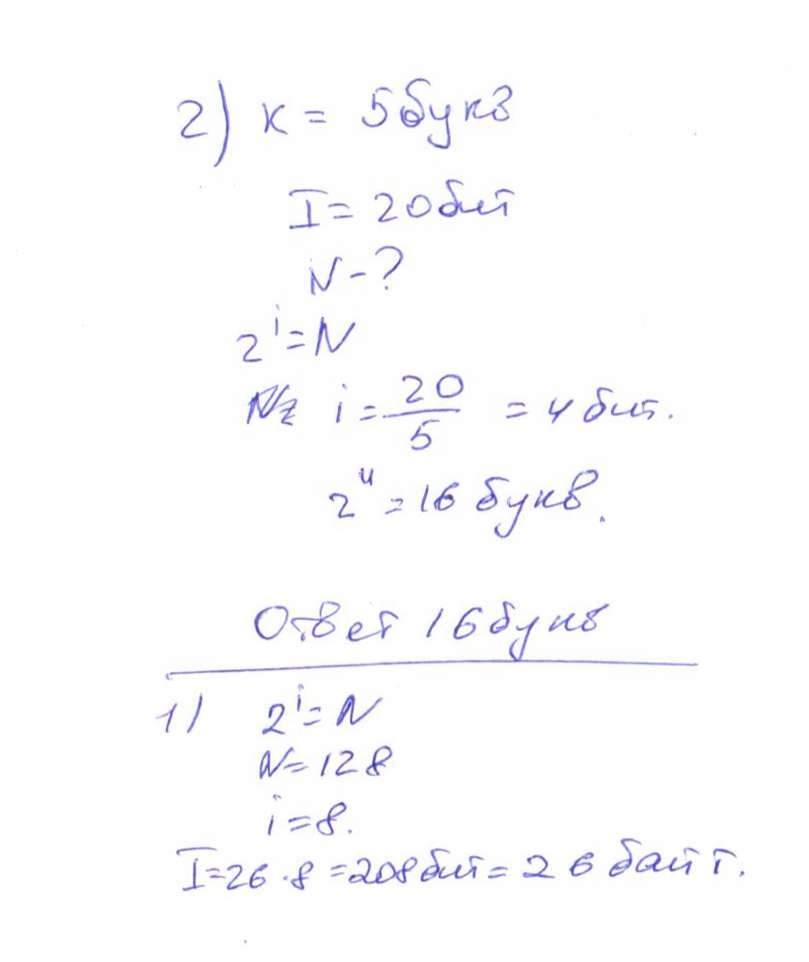 2) К = 5 букв
I = 20 бит
N - ?
2^i = N
i = 20/5 = 4 бит.
2^4 = 16 букв.
Ответ 16 букв
1) 2^i = N
N = 128
i = 8.
I = 26 · 8 = 208 бит = 26 байт.